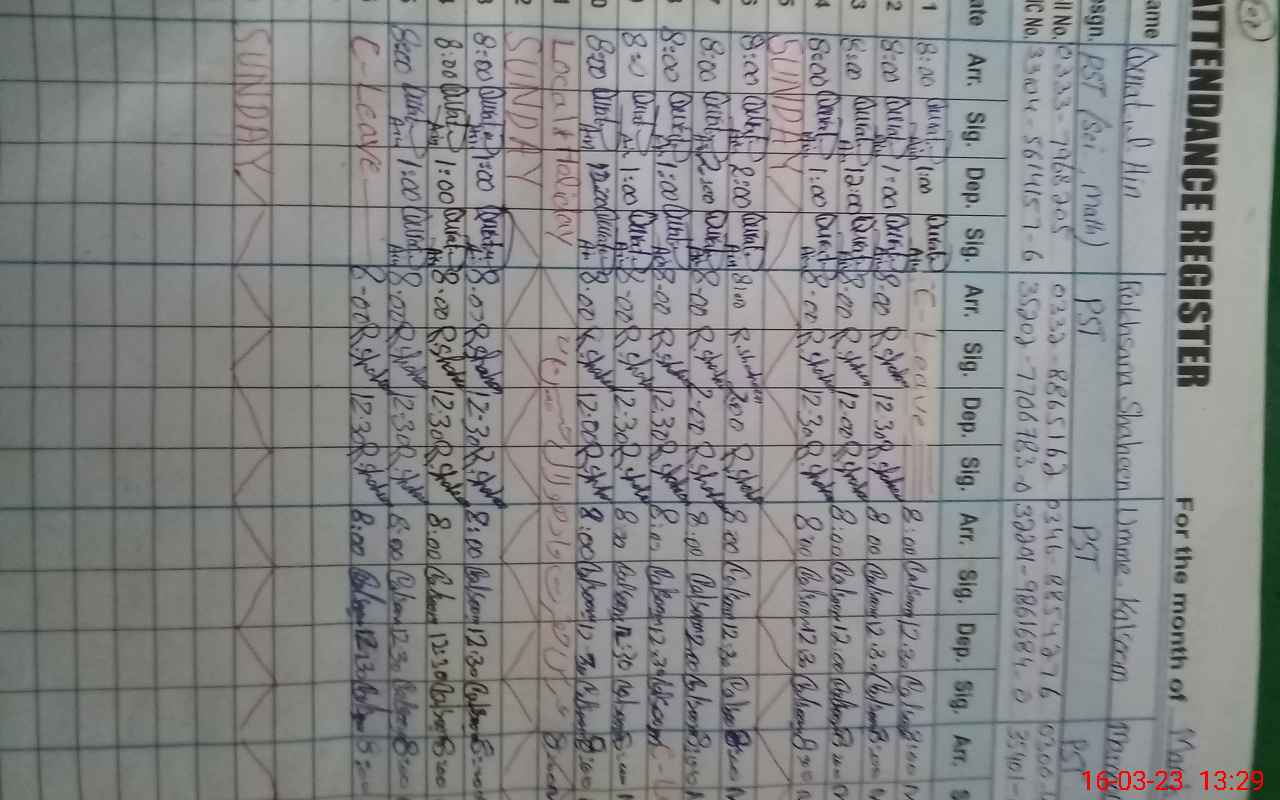 ATTENDANCE REGISTER For the month of
ame Qurat ul Ain Rukhsana Shaheen Umme Kalsoom
esgn. PST (Sci, math) PST PST PST
ll No. 0333-7968205 0332-8865162 0346-8854276 0300
IC No. 3304-5614157-6 35202-7706783-0 03221-9861684-0 35401-
ate Arr. Sig. Dep. Sig. Arr. Sig. Dep. Sig. Arr. Sig. Dep. Sig. Arr. S
1 8:00 Qurat Ain 1:00 Qurat Ain C-Leave 8:00 Kalsoom 12:30 Kalsoom 8:00
2 8:00 Qurat Ain 1:00 Qurat Ain 8:00 R.Shaheen 12:30 R.Shaheen 8:00 Kalsoom 12:30 Kalsoom 8:00
3 8:00 Qurat Ain 12:00 Qurat Ain 8:00 R.Shaheen 12:00 R.Shaheen 8:00 Kalsoom 12:00 Kalsoom 8:00
4 8:00 Qurat Ain 1:00 Qurat Ain 8:00 R.Shaheen 12:30 R.Shaheen 8:00 Kalsoom 12:30 Kalsoom 8:00
5 SUNDAY
6 8:00 Qurat Ain 2:00 Qurat Ain 8:00 R.Shaheen 2:00 R.Shaheen 8:00 Kalsoom 12:30 Kalsoom 8:00
7 8:00 Qurat Ain 2:00 Qurat Ain 8:00 R.Shaheen 2:00 R.Shaheen 8:00 Kalsoom 2:00 Kalsoom 8:00
8 8:00 Qurat Ain 1:00 Qurat Ain 8:00 R.Shaheen 12:30 R.Shaheen 8:00 Kalsoom 12:30 Kalsoom
8:00 Qurat Ain 1:00 Qurat Ain 8:00 R.Shaheen 12:30 R.Shaheen 8:00 Kalsoom 12:30 Kalsoom
0 8:00 Qurat Ain 12:00 Qurat Ain 8:00 R.Shaheen 12:00 R.Shaheen 8:00 Kalsoom 12:30 Kalsoom 8:00
1 Local Holiday
2 SUNDAY
3 8:00 Qurat Ain 1:00 Qurat Ain 8:00 R.Shaheen 12:30 R.Shaheen 8:00 Kalsoom 12:30 Kalsoom 8:00
4 8:00 Qurat Ain 1:00 Qurat Ain 8:00 R.Shaheen 12:30 R.Shaheen 8:00 Kalsoom 12:30 Kalsoom 8:00
8:00 Qurat Ain 1:00 Qurat Ain 8:00 R.Shaheen 12:30 R.Shaheen 8:00 Kalsoom 12:30 Kalsoom 8:00
C-Leave 8:00 R.Shaheen 12:30 R.Shaheen 8:00 Kalsoom 12:30 Kalsoom 8:00
SUNDAY
16-03-23 13:29